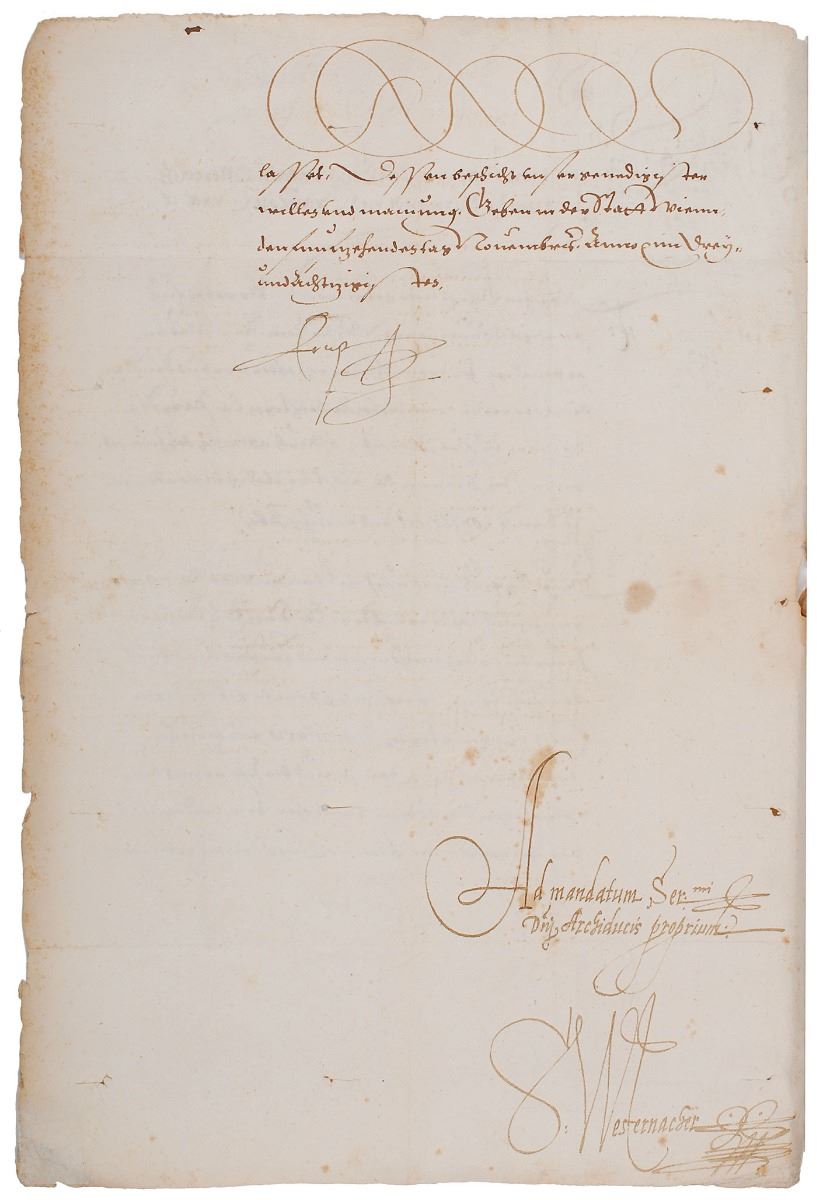 lasset, dessen beschicht unser genedigister
willen und mainung. Geben in der Statt Wienn,
den funfzehendten tag Novembris. Anno im drey-
undachtzigisten.
Ernst
Ad mandatum Ser.mi
Dnj Archiducis proprium.
S: Westernacher